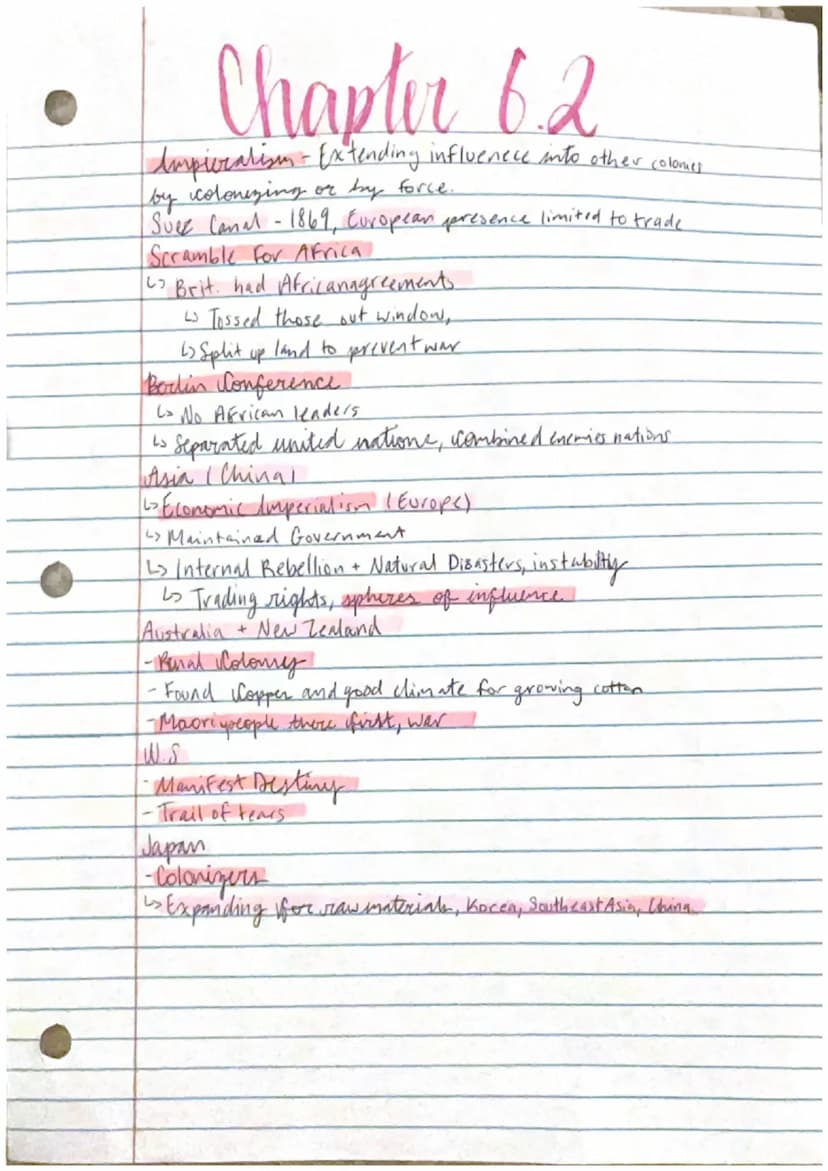 Chapter 6.2
Impieralism - Extending influenece into other colonies
by colonizing or by force.
Suez Canal - 1869, European presence limited to trade
Scramble For Africa
↳ Brit. had African agreements
↳ Tossed those out window,
↳ Split up land to prevent war
Berlin Conference
↳ No African leaders
↳ Separated united nations, combined enemies nations
Asia (China)
↳ Economic Imperialism (Europe)
↳ Maintained Government
↳ Internal Rebellion + Natural Disasters, instability
↳ Trading rights, spheres of influence
Australia + New Zealand
- Penal Colony
- Found Copper and good climate for growing cotton
- Maori people there first, war
U.S
- Manifest Destiny
- Trail of tears
Japan
- Colonizers
↳ Expanding for raw materials, Korea, Southeast Asia, China